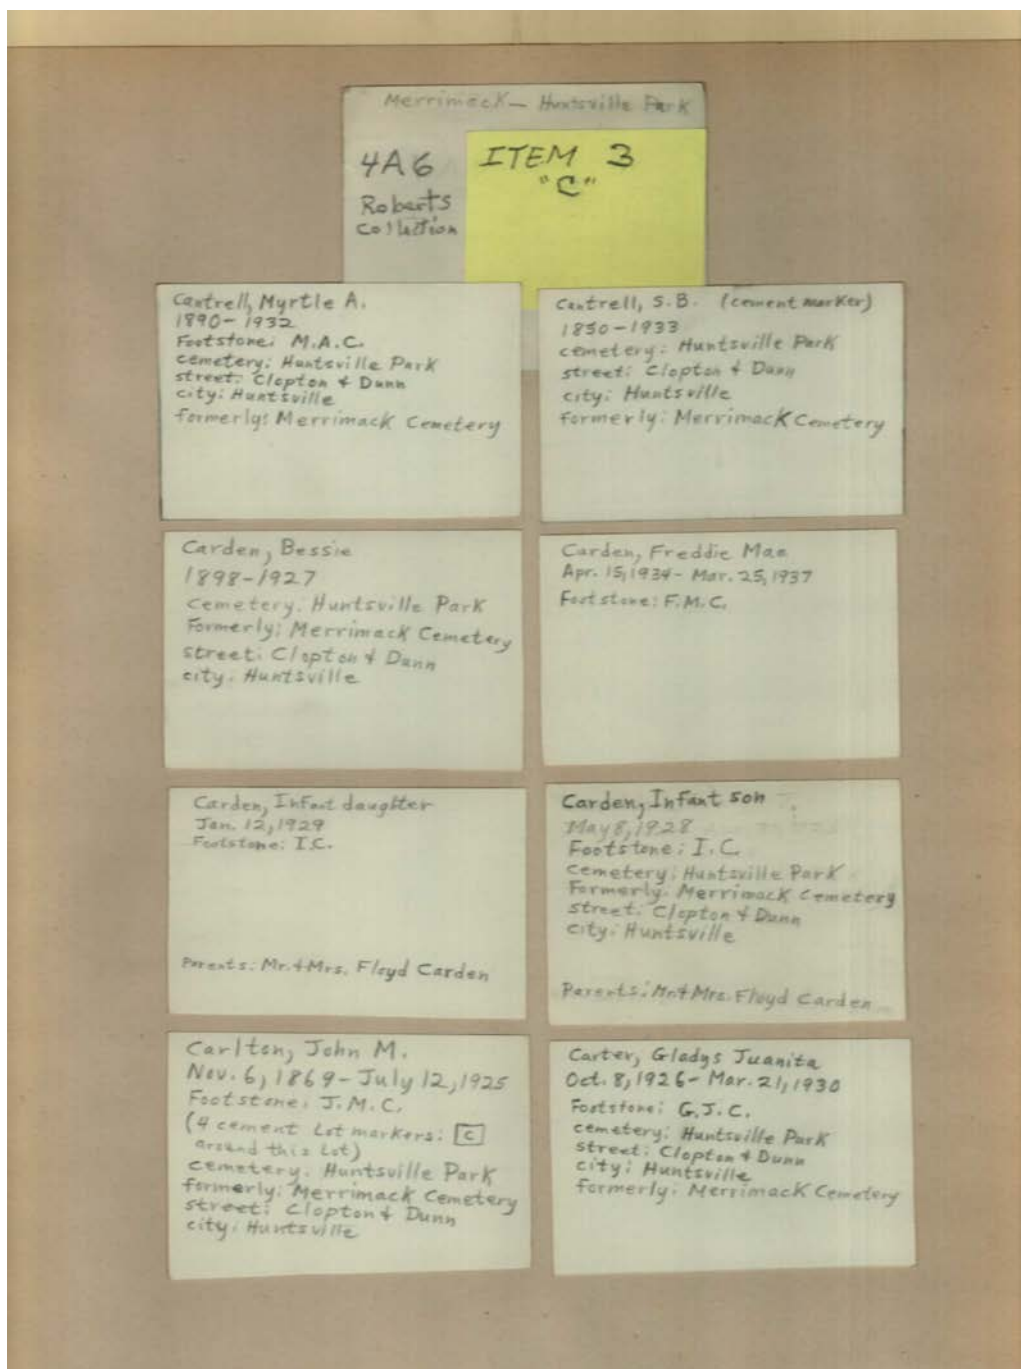 Merrimack — Huntsville Park
4A6
Roberts
Collection
ITEM 3
"C"
Cantrell, Myrtle A.
1890 - 1932
Footstone: M.A.C.
cemetery: Huntsville Park
street: Clopton & Dunn
city: Huntsville
formerly: Merrimack Cemetery
Cantrell, S.B. (cement marker)
1850 - 1933
cemetery: Huntsville Park
street: Clopton & Dunn
city: Huntsville
formerly: Merrimack Cemetery
Carden, Bessie
1898-1927
Cemetery: Huntsville Park
Formerly: Merrimack Cemetery
street: Clopton & Dunn
city: Huntsville
Carden, Freddie Mae
Apr. 15, 1934 - Mar. 25, 1937
Footstone: F.M.C.
Carden, Infant daughter
Jan. 12, 1929
Footstone: I.C.
Parents: Mr. & Mrs. Floyd Carden
Carden, Infant son
May 8, 1928
Footstone: I.C.
Cemetery: Huntsville Park
Formerly: Merrimack Cemetery
street: Clopton & Dunn
city: Huntsville
Parents: Mr & Mrs. Floyd Carden
Carlton, John M.
Nov. 6, 1869 - July 12, 1925
Footstone: J.M.C.
(4 cement Lot markers: C
around this Lot)
cemetery: Huntsville Park
formerly: Merrimack Cemetery
street: Clopton & Dunn
city: Huntsville
Carter, Gladys Juanita
Oct. 8, 1926 - Mar. 21, 1930
Footstone: G.J.C.
cemetery: Huntsville Park
street: Clopton & Dunn
city: Huntsville
formerly: Merrimack Cemetery